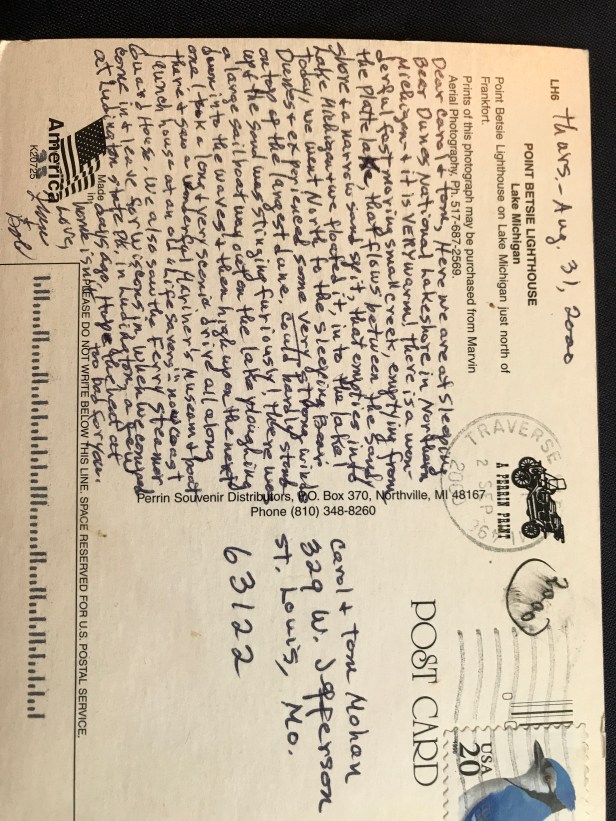 LH6
Thurs. - Aug. 31, 2000
POINT BETSIE LIGHTHOUSE
Lake Michigan
Point Betsie Lighthouse on Lake Michigan just north of
Frankfort.
Prints of this photograph may be purchased from Marvin
Aerial Photography, Ph. 517-687-2569.
Dear Carol & Tom, Here we are at Sleeping
Bear Dunes National Lakeshore in Northern
Michigan & it is VERY warm! there is a won-
derful fast moving small creek, emptying from
the Platte lake, that flows between the sandy
shore & a narrow sand spit, that empties into
Lake Michigan & we floated it, in to the lake!
today, we went North to the Sleeping Bear
Dunes & experienced some very strong wind
on top of the largest dune. Could hardly stand
up & the sand was stinging furiously! there was
a large sailboat way out on the lake ploughing
down into the waves & then high up on the next
one! took a long & very scenic drive all along
there & saw a wonderful Mariner's Museum & boat
launch house at an old "Life Savers" - now coast
Guard House. We also saw the Ferry steamer
come in & leave for Wisconsin when we camped
at Ludington State Pk. in Ludington, a few
days ago. Hope the heat at
home isn't too bad for you.
Love,
Bob
Made in
America
K20725
PLEASE DO NOT WRITE BELOW THIS LINE. SPACE RESERVED FOR U.S. POSTAL SERVICE.
Perrin Souvenir Distributors, P.O. Box 370, Northville, MI 48167
Phone (810) 348-8260
A PERRIN PRINT
TRAVERSE
2 SEP
2000
2000
POST CARD
USA
20
Carol & Tom Mohan
329 W. Jefferson
St. Louis, Mo.
63122